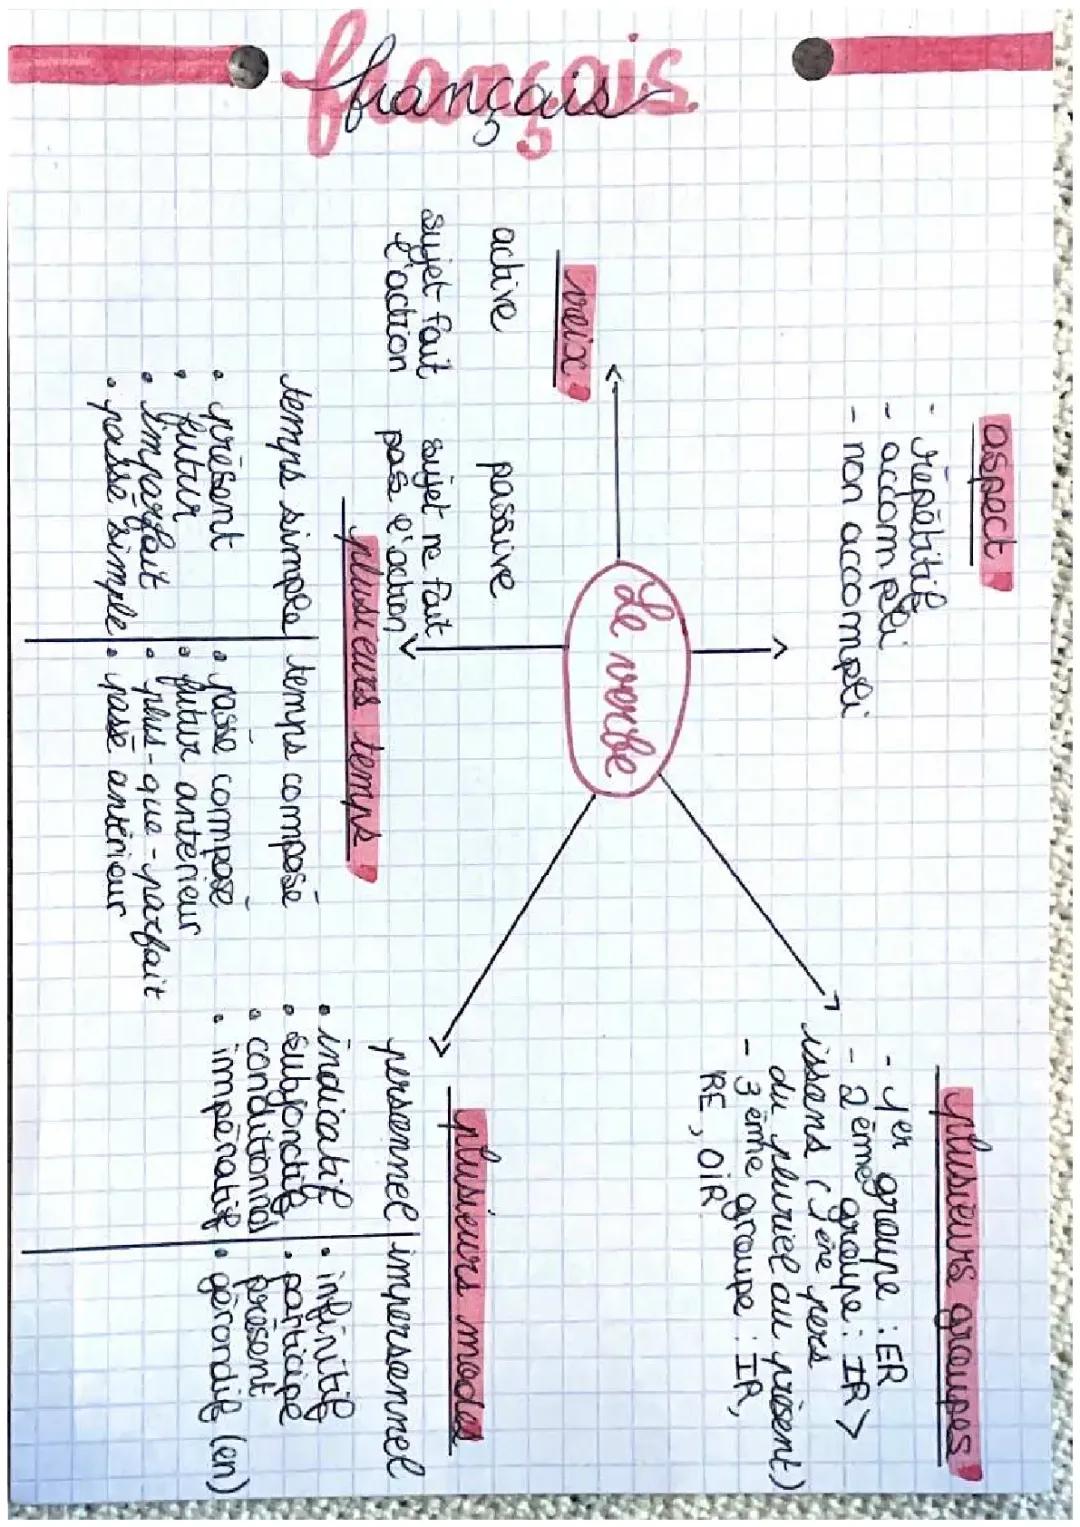 français
aspect
- répétitif
- accompli
- non accompli
plusieurs groupes
- 1er groupe : ER
- 2ème groupe : IR >
issens (1ère pers
du pluriel au présent)
- 3ème groupe : IR,
RE, OIR
Le verbe
voix
active
passive
sujet fait
l'action
sujet ne fait
pas l'action
plusieurs temps
temps simple
temps composé
• présent
• futur
• imparfait
• passé simple
• passé composé
• futur antérieur
• plus-que-parfait
• passé antérieur
plusieurs modes
personnel
impersonnel
• indicatif
• subjonctif
• conditionnel
• impératif
• infinitif
• participe
présent
• gérondif (en)